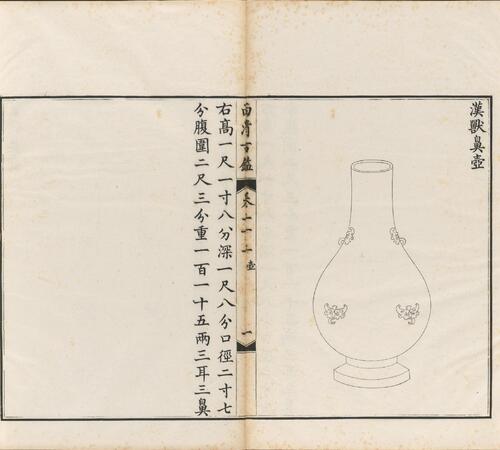 漢獸鼻壺
西清古鑑
卷 壺
一
右高一尺一寸八分深一尺八分口徑二寸七
分腹圍二尺三分重一百一十五兩三耳三鼻